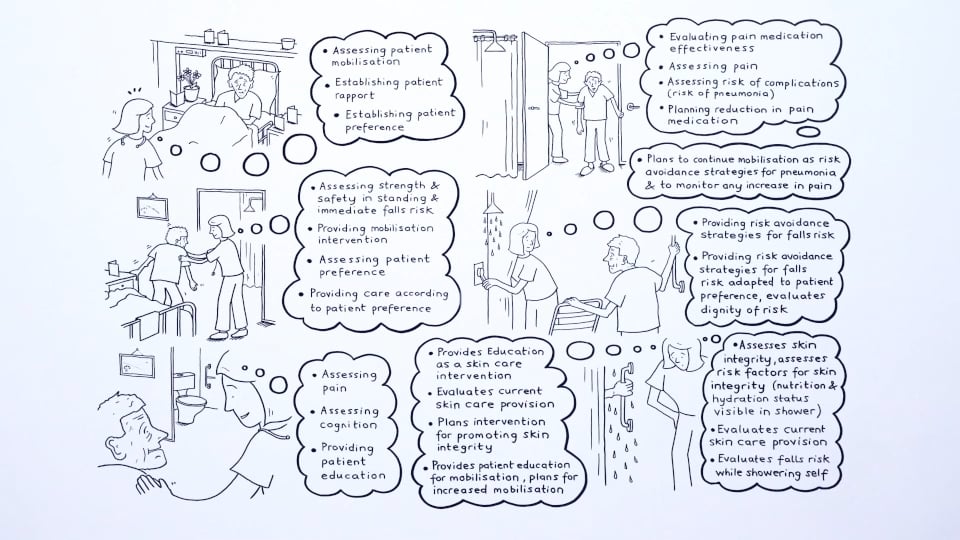 • Assessing patient
mobilisation
• Establishing patient
rapport
• Establishing patient
preference
• Assessing strength &
safety in standing &
immediate falls risk
• Providing mobilisation
intervention
• Assessing patient
preference
• Providing care according
to patient preference
• Assessing
pain
• Assessing
cognition
• Providing
patient
education
• Evaluating pain medication
effectiveness
• Assessing pain
• Assessing risk of complications
(risk of pneumonia)
• Planning reduction in pain
medication
• Plans to continue mobilisation as risk
avoidance strategies for pneumonia
& to monitor any increase in pain
• Providing risk avoidance
strategies for falls risk
• Providing risk avoidance
strategies for falls
risk adapted to patient
preference, evaluates
dignity of risk
• Assesses skin
integrity, assesses
risk factors for skin
integrity (nutrition &
hydration status
visible in shower)
• Evaluates current
skin care provision
• Evaluates falls risk
while showering self
• Provides Education
as a skin care
intervention
• Evaluates current
skin care provision
• Plans intervention
for promoting skin
integrity
• Provides patient education
for mobilisation, plans for
increased mobilisation